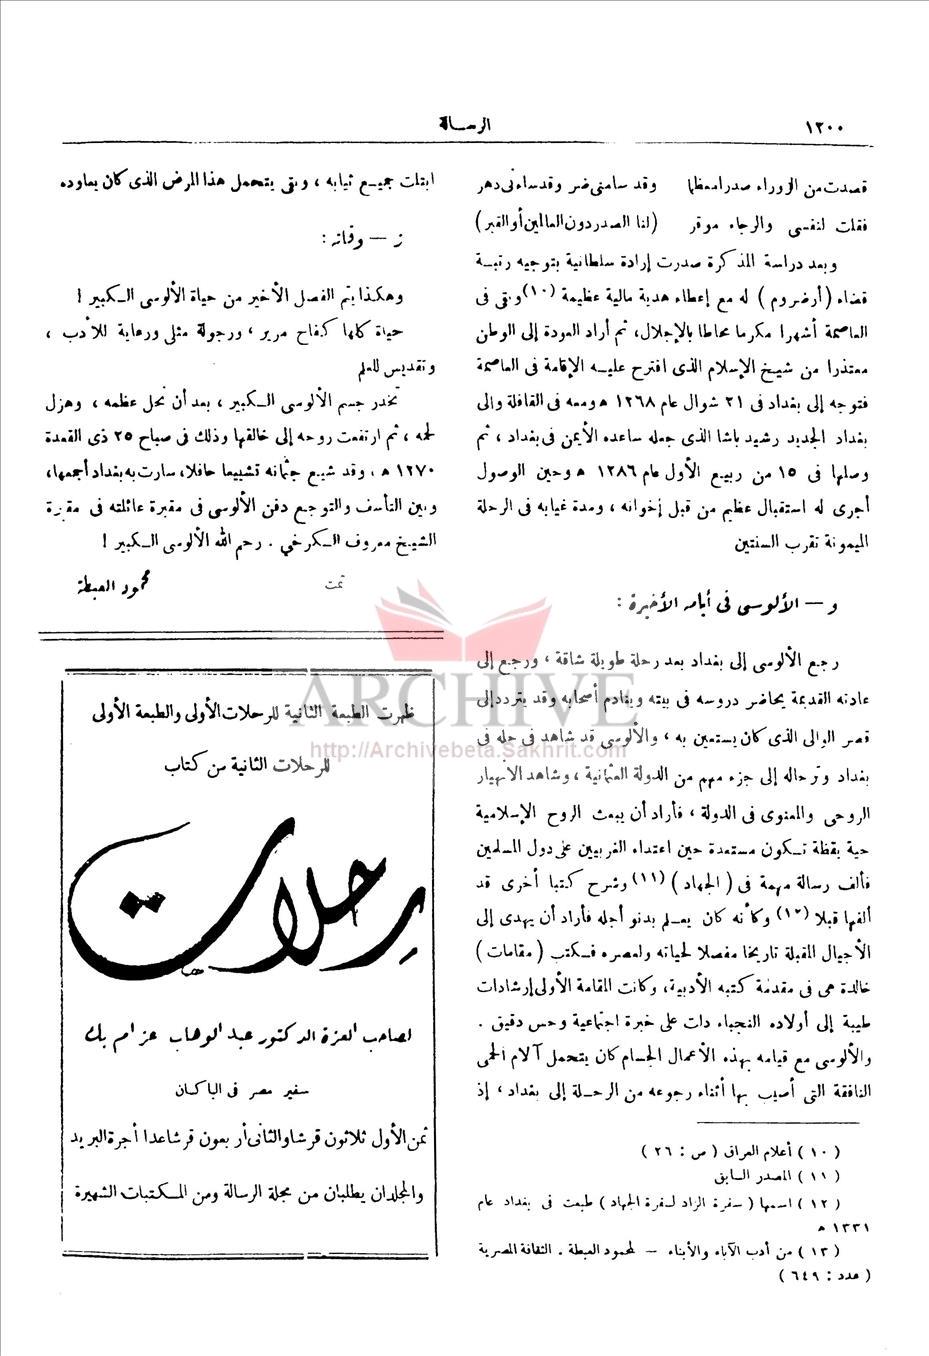 ١٢٠٠
الرسالة
قصدت من الزوراء صدرا معظما وقد سامنى ضر وقد ساءنى دهر
فقلت لنفسى والرجاء موقر (لنا الصدر دون العالمين أو القبر)
وبعد دراسة المذكرة صدرت إرادة سلطانية بتوجيه رتبة
قضاء (أرضروم) له مع إعطاء هدية مالية عظيمة (١٠) وبقى فى
العاصمة أشهرا مكرما محاطا بالإجلال، ثم أراد العودة إلى الوطن
معتذرا من شيخ الإسلام الذى اقترح عليه الإقامة فى العاصمة
فتوجه إلى بغداد فى ٢١ شوال عام ١٢٦٨ ه ومعه فى القافلة والى
بغداد الجديد رشيد باشا الذى جعله ساعده الأيمن فى بغداد، ثم
وصلها فى ١٥ من ربيع الأول عام ١٢٨٦ ه وحين الوصول
أجرى له استقبال عظيم من قبل إخوانه، ومدة غيابه فى الرحلة
الميمونة تقرب السنتين
و — الألوسى فى أيامه الأخيرة:
رجع الألوسى إلى بغداد بعد رحلة طويلة شاقة، ورجع إلى
عادته القديمة يحاضر دروسه فى بيته وينادم أصحابه وقد يتردد إلى
قصر الوالى الذى كان يستعين به، والألوسى قد شاهد فى حله فى
بغداد وترحاله إلى جزء مهم من الدولة العثمانية، وشاهد الانهيار
الروحى والمعنوى فى الدولة، فأراد أن يبعث الروح الإسلامية
حية يقظة تكون مستعدة حين اعتداء الغربيين على دول المسلمين
فألف رسالة مهمة فى (الجهاد) (١١) وشرح كتبا أخرى قد
ألفها قبلا (١٢) وكأنه كان يعلم بدنو أجله فأراد أن يهدى إلى
الأجيال المقبلة تاريخا مفصلا لحياته ولعصره فكتب (مقامات)
خالدة هى فى مقدمة كتبه الأدبية، وكانت المقامة الأولى إرشادات
طيبة إلى أولاده النجباء دات على خبرة اجتماعية وحس دقيق.
والألوسى مع قيامه بهذه الأعمال الجسام كان يتحمل آلام الحمى
النافقة التى أصيب بها أثناء رجوعه من الرحلة إلى بغداد، إذ
(١٠) أعلام العراق (ص: ٢٦)
(١١) المصدر السابق
(١٢) اسمها (سفرة الزاد لسفرة الجهاد) طبعت فى بغداد عام
١٣٣١ ه
(١٣) من أدب الآباء والأبناء — لمحمود العبطة. الثقافة المصرية
(عدد: ٦٤٩)
ابتلت جميع ثيابه، وبقى يتحمل هذا المرض الذى كان يعاوده
ز — وفاته:
وهكذا يتم الفصل الأخير من حياة الألوسى الكبير!
حياة كلها كفاح مرير، ورجولة مثلى ورعاية للأدب،
وتقديس للعلم
تخدر جسم الألوسى الكبير، بعد أن نحل عظمه، وهزل
لحمه، ثم ارتفعت روحه إلى خالقها وذلك فى صباح ٢٥ ذى القعدة
١٢٧٠ ه، وقد شيع جثمانه تشييعا حافلا، سارت به بغداد أجمعها،
وبين التأسف والتوجع دفن الألوسى فى مقبرة عائلته فى مقبرة
الشيخ معروف الكرخي. رحم الله الألوسى الكبير!
تمت محمود العبطة
ARCHIVE
http://Archivebeta.Sakhrit.com
ظهرت الطبعة الثانية للرحلات الأولى والطبعة الأولى
للرحلات الثانية من كتاب
رحلات
لصاحب العزة الدكتور عبد الوهاب عزام بك
سفير مصر فى الباكستان
ثمن الأول ثلاثون قرشا والثانى أربعون قرشا عدا أجرة البريد
والمجلدان يطلبان من مجلة الرسالة ومن المكتبات الشهيرة